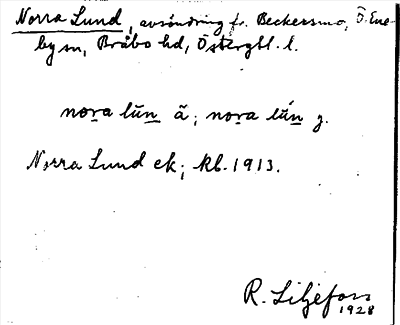 Norra Lund, avsöndring fr. Beckersmo, Ö. Ene-
by sn, Bråbo hd, Östergtl. l.
nora lūn ā; nora lūn y.
Norra Lund ek; kb. 1913.
R. Liljefors
1928